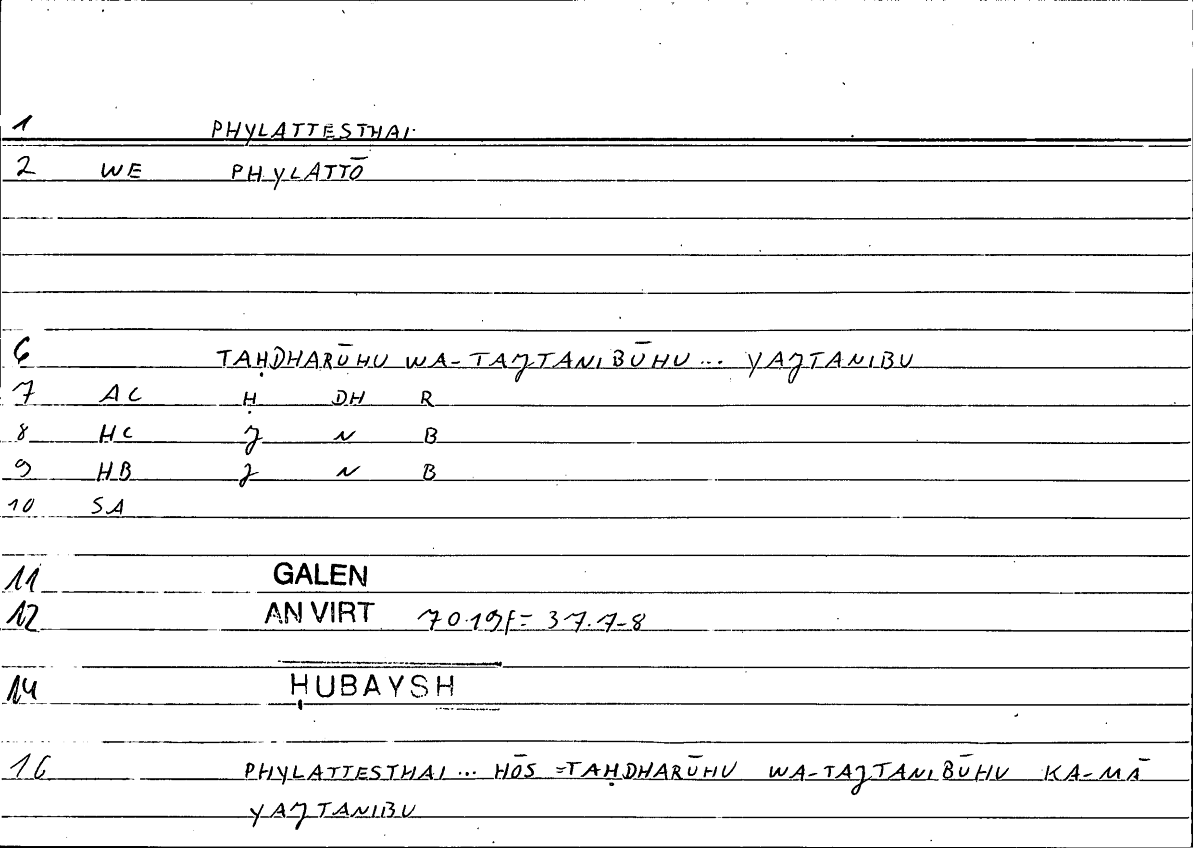 1 PHYLATTESTHAI
2 WE PHYLATTŌ
6 TAḤDHARŪHU WA-TAJTANIBŪHU... YAJTANIBU
7 AC Ḥ DH R
8 HC J N B
9 HB J N B
10 SA
11 GALEN
12 AN VIRT 70.19f= 37.7-8
14 ḤUBAYSH
16 PHYLATTESTHAI... HŌS =TAḤDHARŪHU WA-TAJTANIBŪHU KA-MĀ
YAJTANIBU